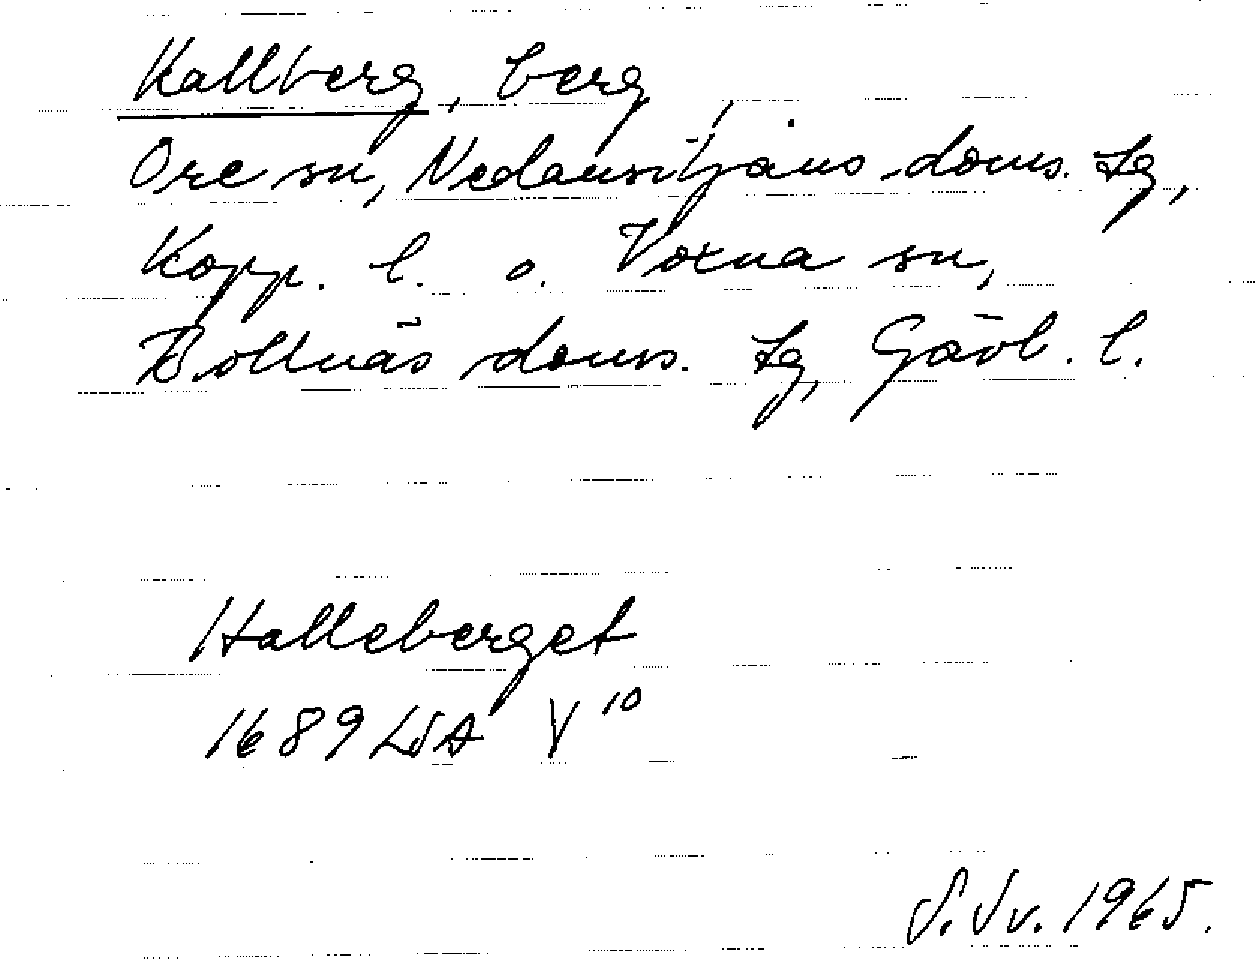 Kallberg, berg,
Ore sn, Nedansiljans doms. tg,
Kopp. l. o. Voxna sn,
Bollnäs doms. tg, Gävl. l.
Halleberget
1689 LSA V10
S. Sv. 1965.